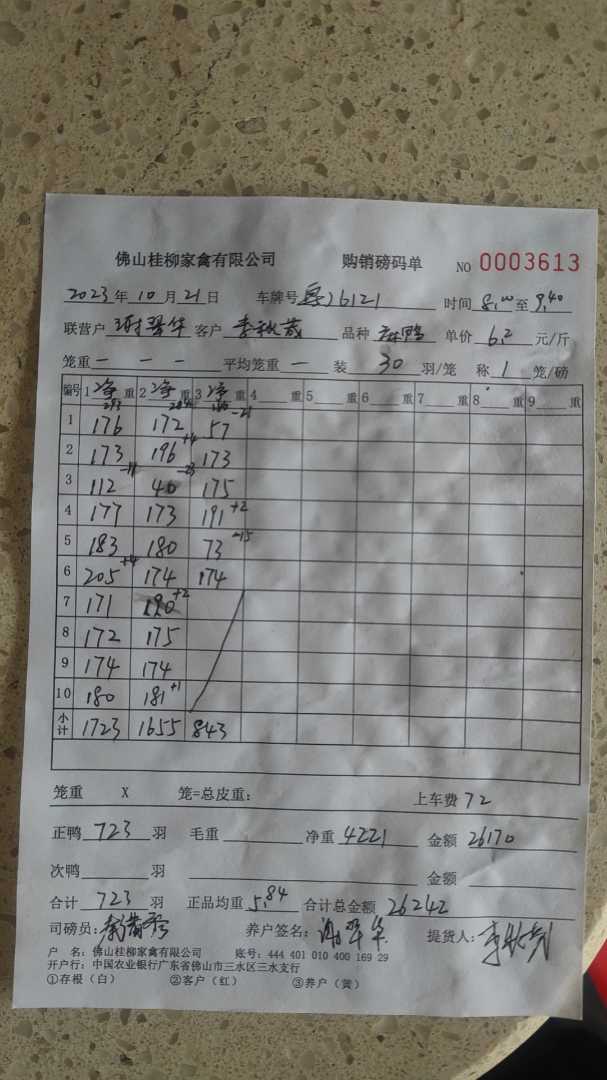 佛山桂柳家禽有限公司 购销磅码单 NO 0003613
2023年10月21日 车牌号 粤J6121 时间 8:00至9:40
联营户 谢翠华 客户 李秋 品种 单价 6.2 元/斤
笼重 — — — 平均笼重 — 装 30 羽/笼 称 1 笼/磅
编号 1 净 重 2 净 重 3 净 重 4 重 5 重 6 重 7 重 8 重 9 重
1 176 172 57 -21
2 173 196 +4 173
3 112 -11 40 -23 175
4 177 173 191 +2
5 183 180 73 -15
6 205 +4 174 174
7 171 190 +2
8 172 175
9 174 174
10 180 181 +1
小计 1723 1655 843
笼重 X 笼=总皮重: 上车费 72
正鸭 723 羽 毛重 净重 4221 金额 26170
次鸭 羽 金额
合计 723 羽 正品均重 5.84 合计总金额 26242
司磅员: 养户签名: 谢翠华 提货人: 李秋
户 名: 佛山桂柳家禽有限公司 账号: 444 401 010 400 169 29
开户行: 中国农业银行广东省佛山市三水区三水支行
①存根（白） ②客户（红） ③养户（黄）